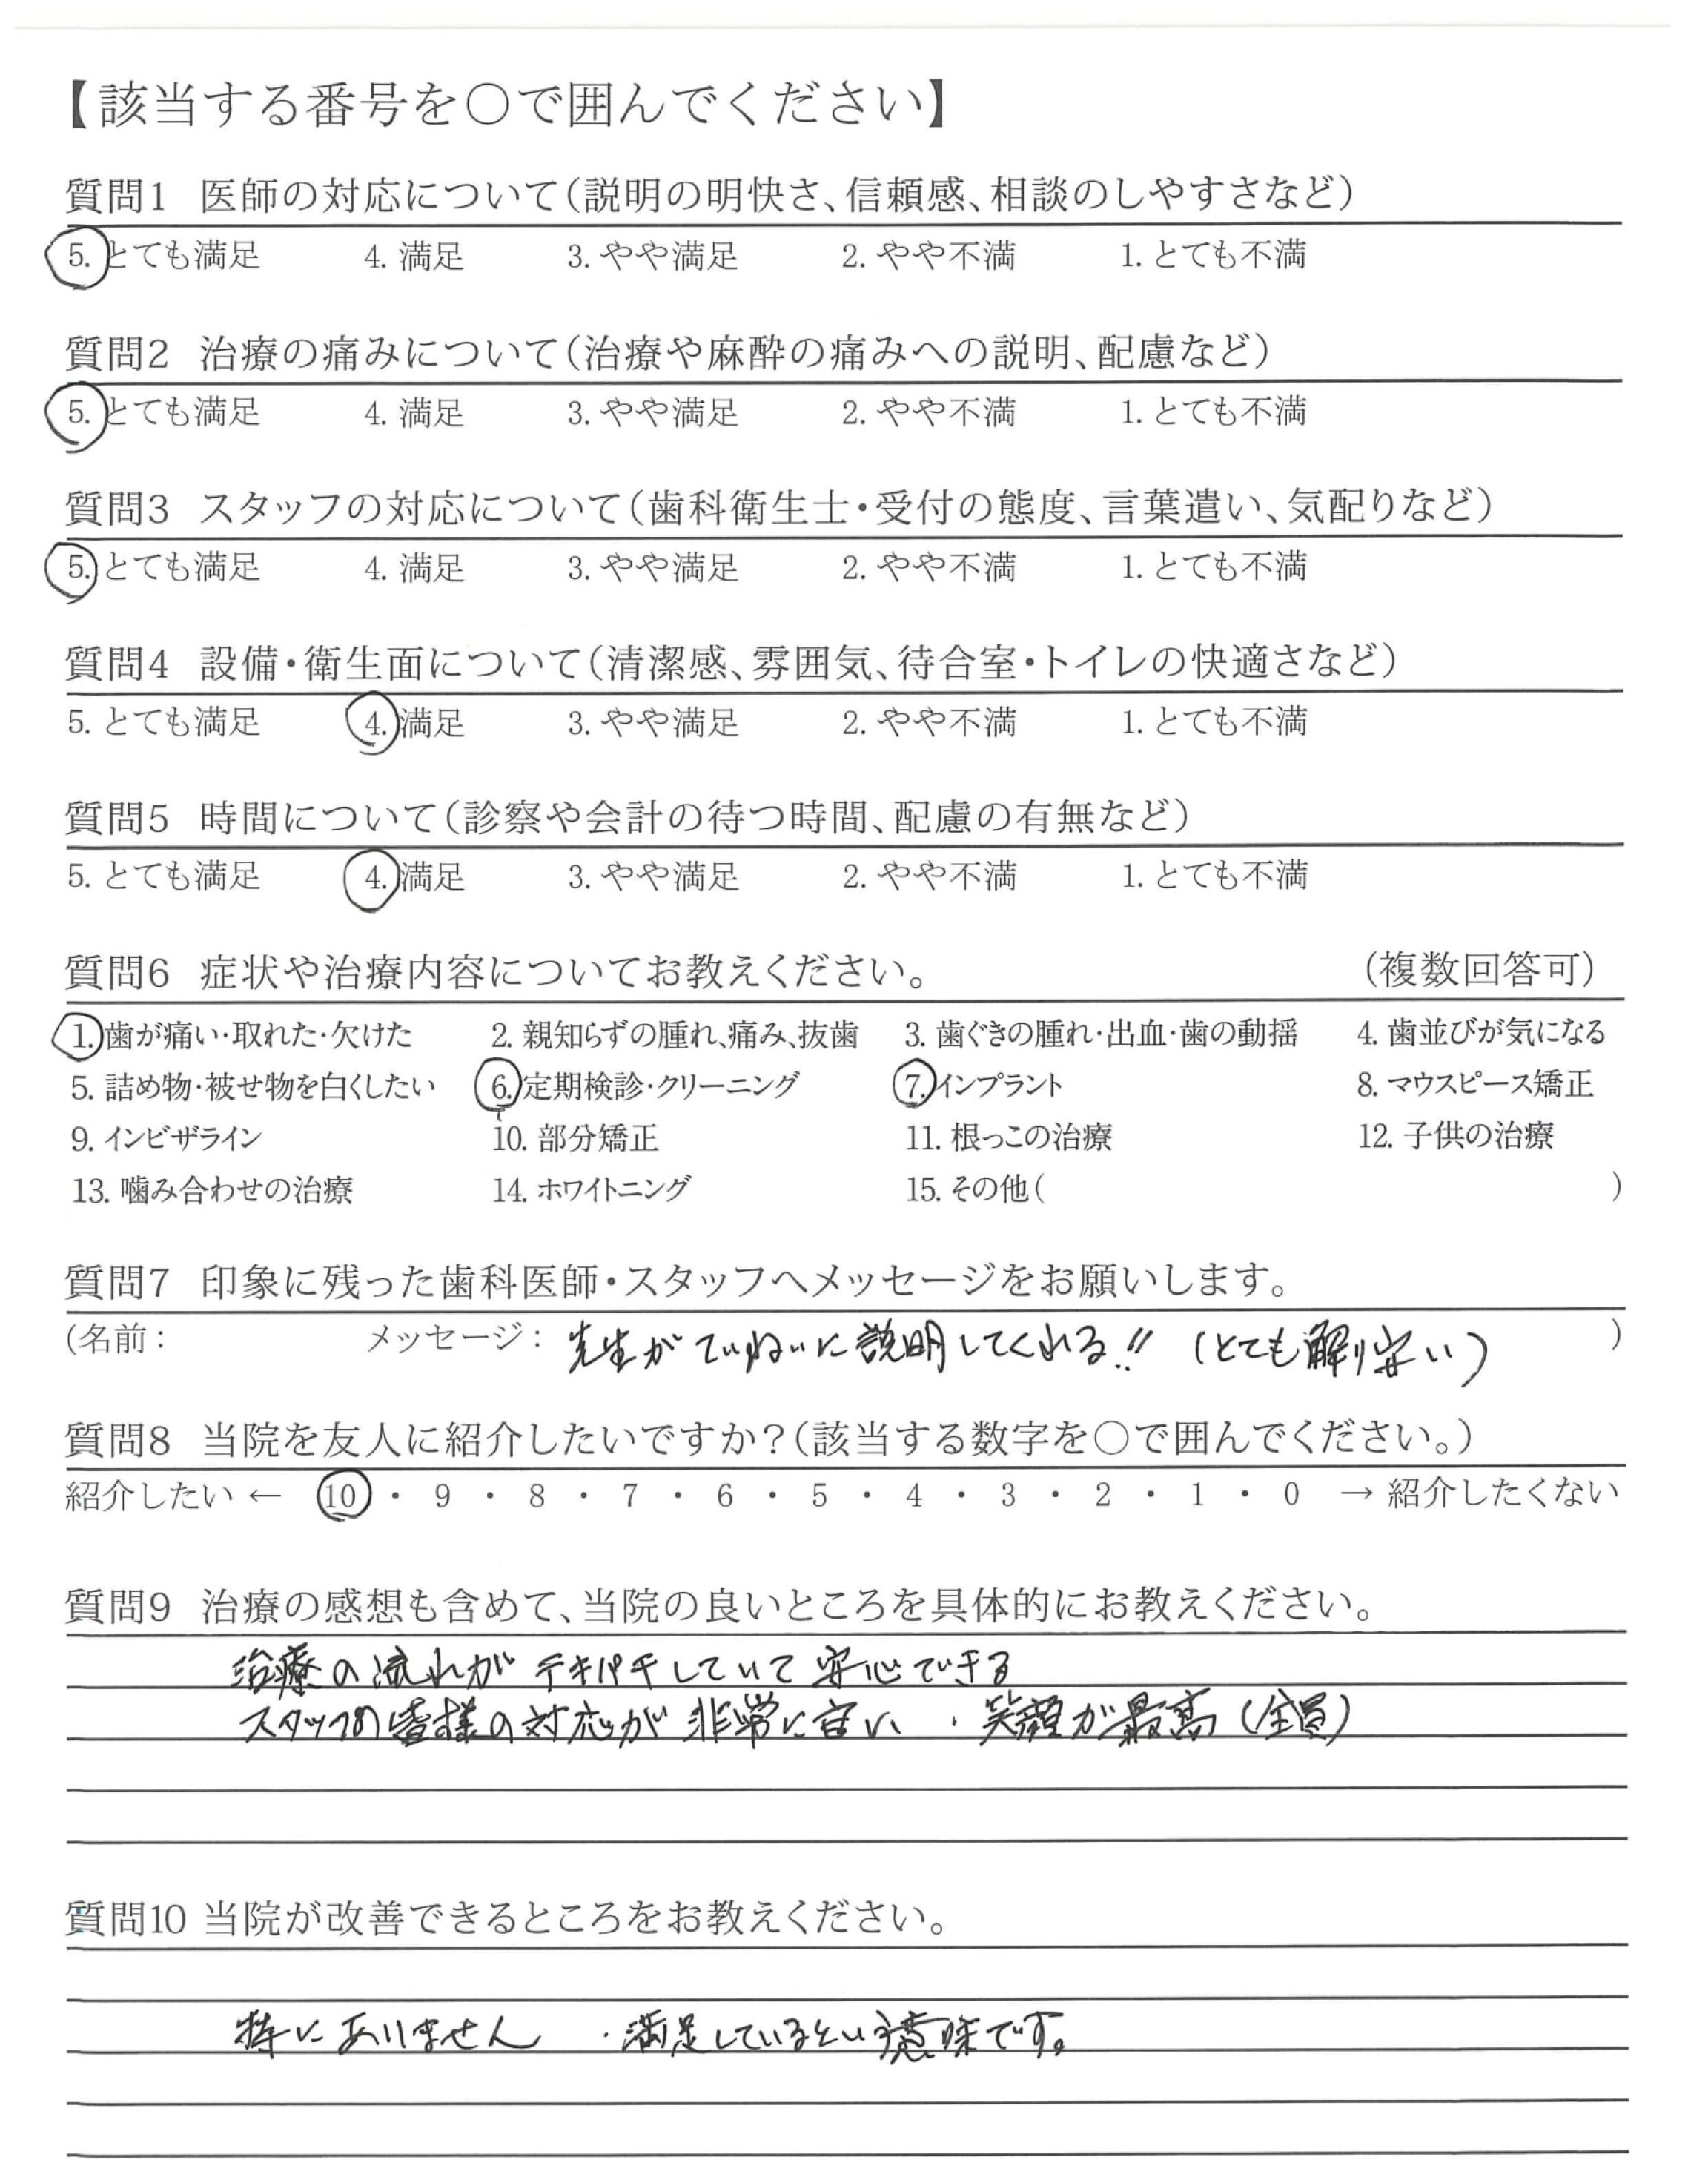 【該当する番号を〇で囲んでください】
質問1 医師の対応について（説明の明快さ、信頼感、相談のしやすさなど）
5. とても満足 4. 満足 3. やや満足 2. やや不満 1. とても不満
質問2 治療の痛みについて（治療や麻酔の痛みへの説明、配慮など）
5. とても満足 4. 満足 3. やや満足 2. やや不満 1. とても不満
質問3 スタッフの対応について（歯科衛生士・受付の態度、言葉遣い、気配りなど）
5. とても満足 4. 満足 3. やや満足 2. やや不満 1. とても不満
質問4 設備・衛生面について（清潔感、雰囲気、待合室・トイレの快適さなど）
5. とても満足 4. 満足 3. やや満足 2. やや不満 1. とても不満
質問5 時間について（診察や会計の待つ時間、配慮の有無など）
5. とても満足 4. 満足 3. やや満足 2. やや不満 1. とても不満
質問6 症状や治療内容についてお教えください。 （複数回答可）
1. 歯が痛い・取れた・欠けた 2. 親知らずの腫れ、痛み、抜歯 3. 歯ぐきの腫れ・出血・歯の動揺 4. 歯並びが気になる
5. 詰め物・被せ物を白くしたい 6. 定期検診・クリーニング 7. インプラント 8. マウスピース矯正
9. インビザライン 10. 部分矯正 11. 根っこの治療 12. 子供の治療
13. 噛み合わせの治療 14. ホワイトニング 15. その他（ ）
質問7 印象に残った歯科医師・スタッフへメッセージをお願いします。
(名前： メッセージ： 先生がていねいに説明してくれる!! (とても解り安い) )
質問8 当院を友人に紹介したいですか？（該当する数字を〇で囲んでください。）
紹介したい ← 10 ・ 9 ・ 8 ・ 7 ・ 6 ・ 5 ・ 4 ・ 3 ・ 2 ・ 1 ・ 0 → 紹介したくない
質問9 治療の感想も含めて、当院の良いところを具体的にお教えください。
治療の流れがテキパキしていて安心できる
スタッフの皆様の対応が非常に い ・笑顔が最高(全員)
質問10 当院が改善できるところをお教えください。
特にありません ・満足しているという意味です。